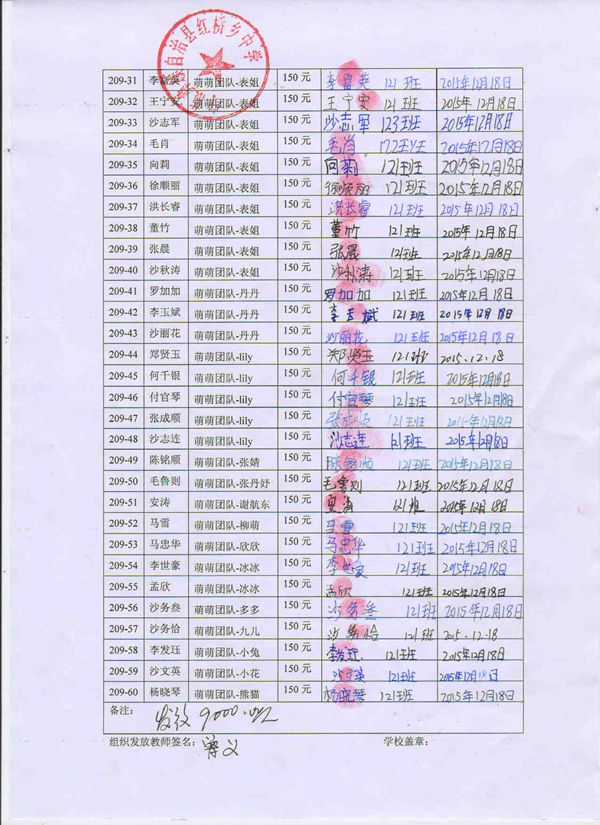 自治县红桥乡中学
209-31 李富英 萌萌团队-表姐 150 元 李富英 121班 2015年12月18日
209-32 王宁安 萌萌团队-表姐 150 元 王宁安 121班 2015年12月18日
209-33 沙志军 萌萌团队-表姐 150 元 沙志军 123班 2015年12月18日
209-34 毛肖 萌萌团队-表姐 150 元 毛肖 2015年12月18日
209-35 向莉 萌萌团队-表姐 150 元 向莉 121班 2015年12月18日
209-36 徐顺丽 萌萌团队-表姐 150 元 徐顺丽 121班 2015年12月18日
209-37 洪长睿 萌萌团队-表姐 150 元 洪长睿 121班 2015年12月18日
209-38 董竹 萌萌团队-表姐 150 元 董竹 121班 2015年12月18日
209-39 张晨 萌萌团队-表姐 150 元 张晨 121班 2015年12月18日
209-40 沙秋涛 萌萌团队-表姐 150 元 沙秋涛 121班 2015年12月18日
209-41 罗加加 萌萌团队-丹丹 150 元 罗加加 121班 2015年12月18日
209-42 李玉斌 萌萌团队-丹丹 150 元 李玉斌 121班 2015年12月18日
209-43 沙丽花 萌萌团队-丹丹 150 元 沙丽花 121班 2015年12月18日
209-44 郑贤玉 萌萌团队-lily 150 元 郑贤玉 121班 2015.12.18
209-45 何千银 萌萌团队-lily 150 元 何千银 121班 2015年12月18日
209-46 付官琴 萌萌团队-lily 150 元 付官琴 121班 2015年12月18日
209-47 张成顺 萌萌团队-lily 150 元 张成顺 121班 2015年12月18日
209-48 沙志连 萌萌团队-lily 150 元 沙志连 121班 2015年12月18日
209-49 陈铭顺 萌萌团队-张婧 150 元 陈铭顺 121班 2015年12月18日
209-50 毛鲁则 萌萌团队-张丹妤 150 元 毛鲁则 121班 2015年12月18日
209-51 安涛 萌萌团队-谢航东 150 元 安涛 121班 2015年12月18日
209-52 马雪 萌萌团队-柳萌 150 元 马雪 121班 2015年12月18日
209-53 马忠华 萌萌团队-欣欣 150 元 马忠华 121班 2015年12月18日
209-54 李世豪 萌萌团队-冰冰 150 元 李世豪 121班 2015年12月18日
209-55 孟欣 萌萌团队-冰冰 150 元 孟欣 121班 2015年12月18日
209-56 沙务叁 萌萌团队-多多 150 元 沙务叁 121班 2015年12月18日
209-57 沙务恰 萌萌团队-九儿 150 元 沙务恰 121班 2015.12.18
209-58 李发珏 萌萌团队-小兔 150 元 李发珏 121班 2015年12月18日
209-59 沙文英 萌萌团队-小花 150 元 沙文英 121班 2015年12月18日
209-60 杨晓琴 萌萌团队-熊猫 150 元 杨晓琴 121班 2015年12月18日
备注： 发放 9000.元
组织发放教师签名： 学校盖章：